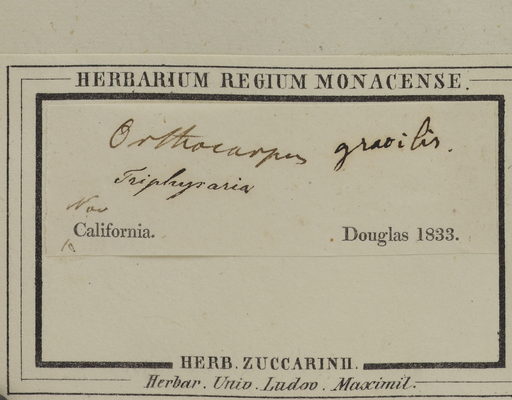 HERBARIUM REGIUM MONACENSE.
Orthocarpus gracilis.
Triphysaria
Nov
California.
Douglas 1833.
HERB. ZUCCARINII.
Herbar. Univ. Ludov. Maximil.